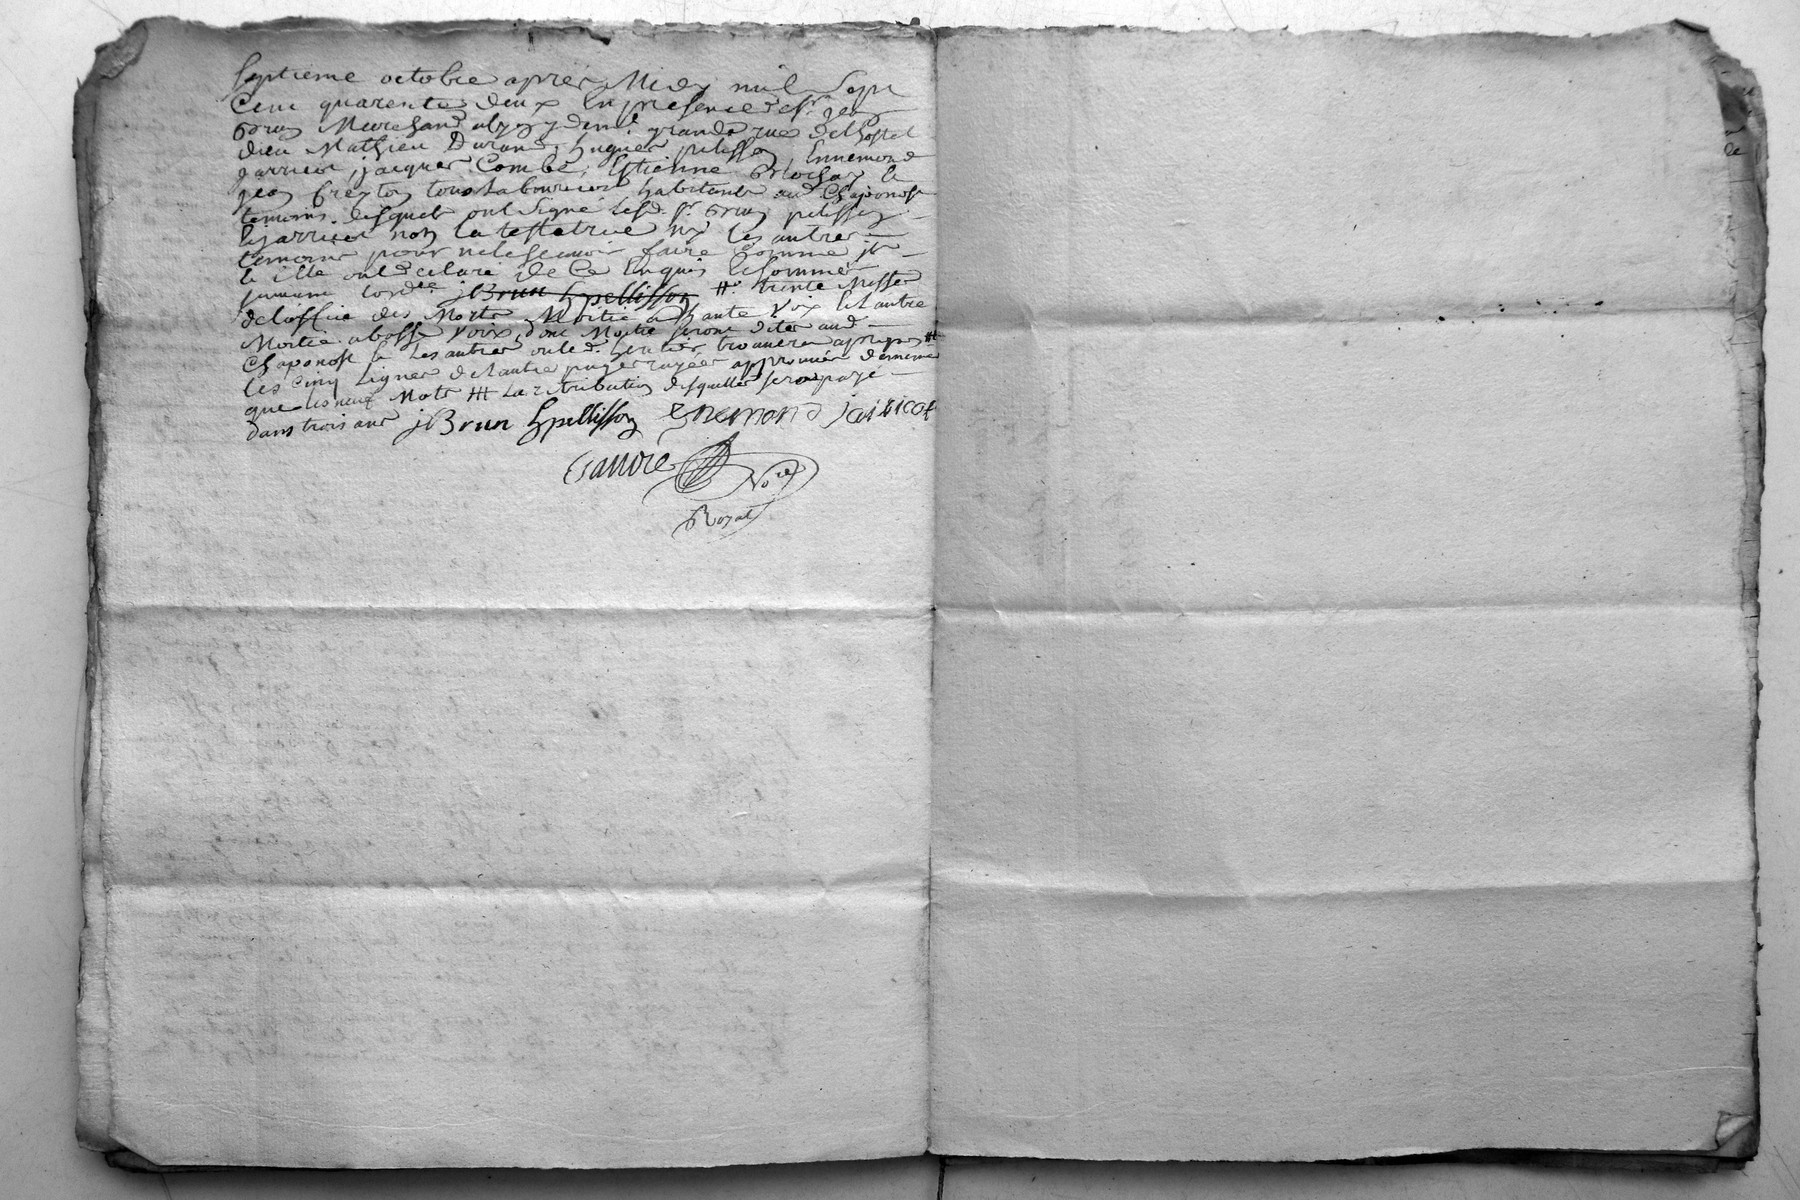 septieme octobre apres Midy mil sept
Cent quarente deux En presence de sr. jean
Brun Marchand a lyon y demt. grande rue de lhostel
dieu Mathieu Durand, hugues pelisson, Ennemond
jarricot, jacques Combe, Estienne Brochay &
jean freyton tous Laboureurs habitants aud. Chaponost
temoins desquels ont signé lesd. sr. Brun pelisson
& jarricot non la testatrice ny les autres
temoins pour ne le scavoir faire comme ils
& Elle ont declaré de Ce Enquis & sommés
suivant lordce. jBrun hpellisson ++ trente Messes
de loffice des Morts Moitié a hante Voix & Lautre
Moitié a basse Voix, dont Moitié seront dites aud.
Chaponost & Les autres ou led. heritier trouvera a propos ++
Les Cinq Lignes de lautre page rayées approuvées de meme
que les neuf Mots +++ La retribution desquelles sera payé
dans trois ans jBrun hpellisson Enemond jaricot
No.re
Royal